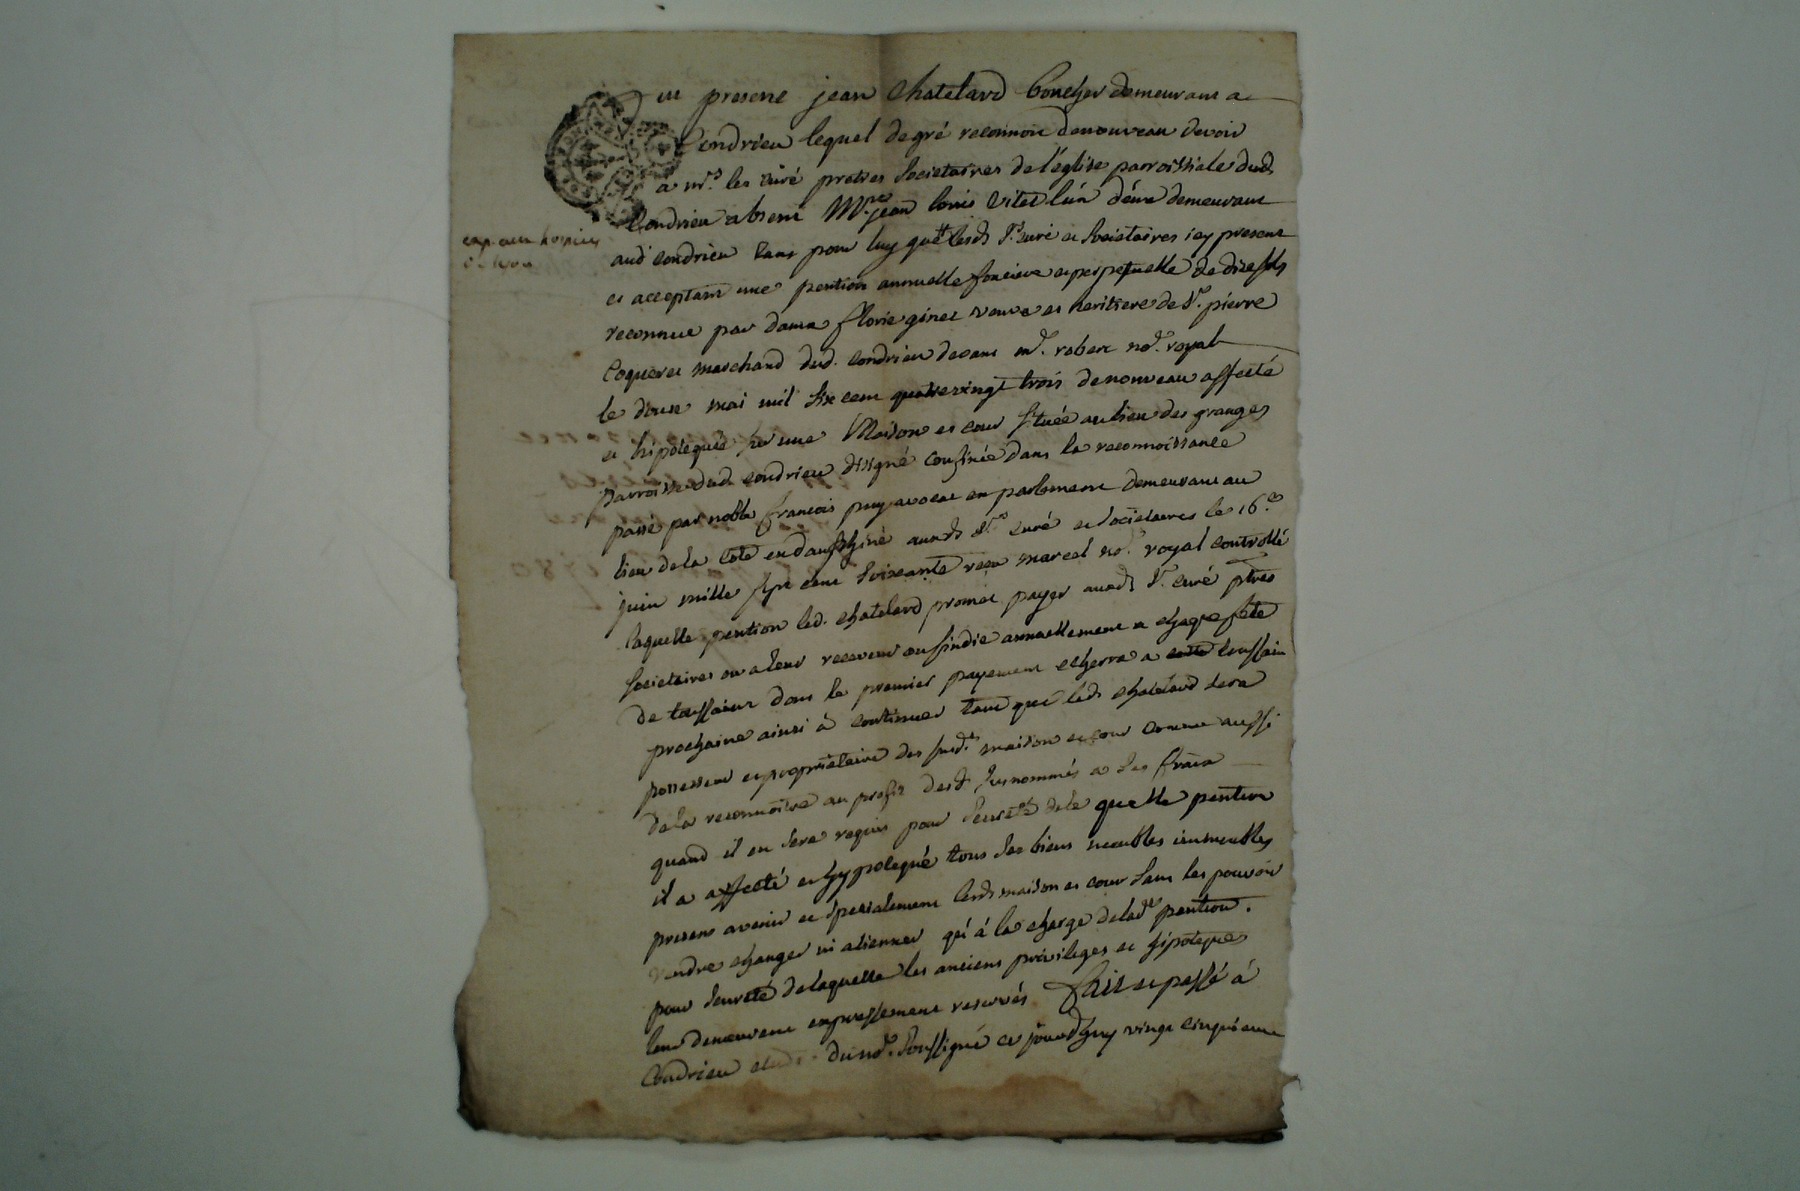 fut present jean Chatelard boucher demeurant a
Condrieu lequel de gré reconnoit denouveau devoir
a mrs. les curé pretres Societaires de l'église parroissiale dud
Condrieu absent Mre. jean louis Vitet l'un d'eux demeurant
aud condrieu tant pour luy que lesds Srs. curé et Societaires icy present
et acceptant une pention annuelle fonciere et perpetuelle de dize sols
reconnue par dame florie ginet veuve et heritiere de Sr. pierre
Coqueret marchand dud. condrieu devant me. robert nore. royal
le douze mai mil six cent quatrevingt trois denouveau affecté
et hipotequée sur une Maison et cour située au lieu des granges
parroisse dud. condrieu désigné confinée dans la reconnoissance
passé par noble francois puy avocat en parlement demeurant au
lieu de la Cote en dauphiné auxds Srs. curé et Societaires le 16e.
juin mille sept cent soixante recu marcel nore. royal controllé
laquelle pention led. chatelard promet payer auxds Sr. curé ptres
societaires ou a leur receveur ou sindic annuellement a chaque fête
de toussaint dont le premier payement echerra a toussaint
prochaine ainsi à continuer tant que led. chatelard sera
possesseur et proprietaire des susd. maison et cour comme aussi
de la reconnoitre au profit desd. susnommés a ses frais
quand il en sera requis pour seureté de la quelle pention
il a affecté et hypotequé tous ses biens meubles immeubles
present avenir et spécialement lesds maison et cour sans les pouvoir
vendre changer ni alienner qu'à la charge de lade pention.
pour seureté de laquelle les anciens privileges et hipoteques
leur demeurent expressement reservés fait et passé à
Condrieu etude du nore. soussigné ce jourdhuy vingt cinquieme